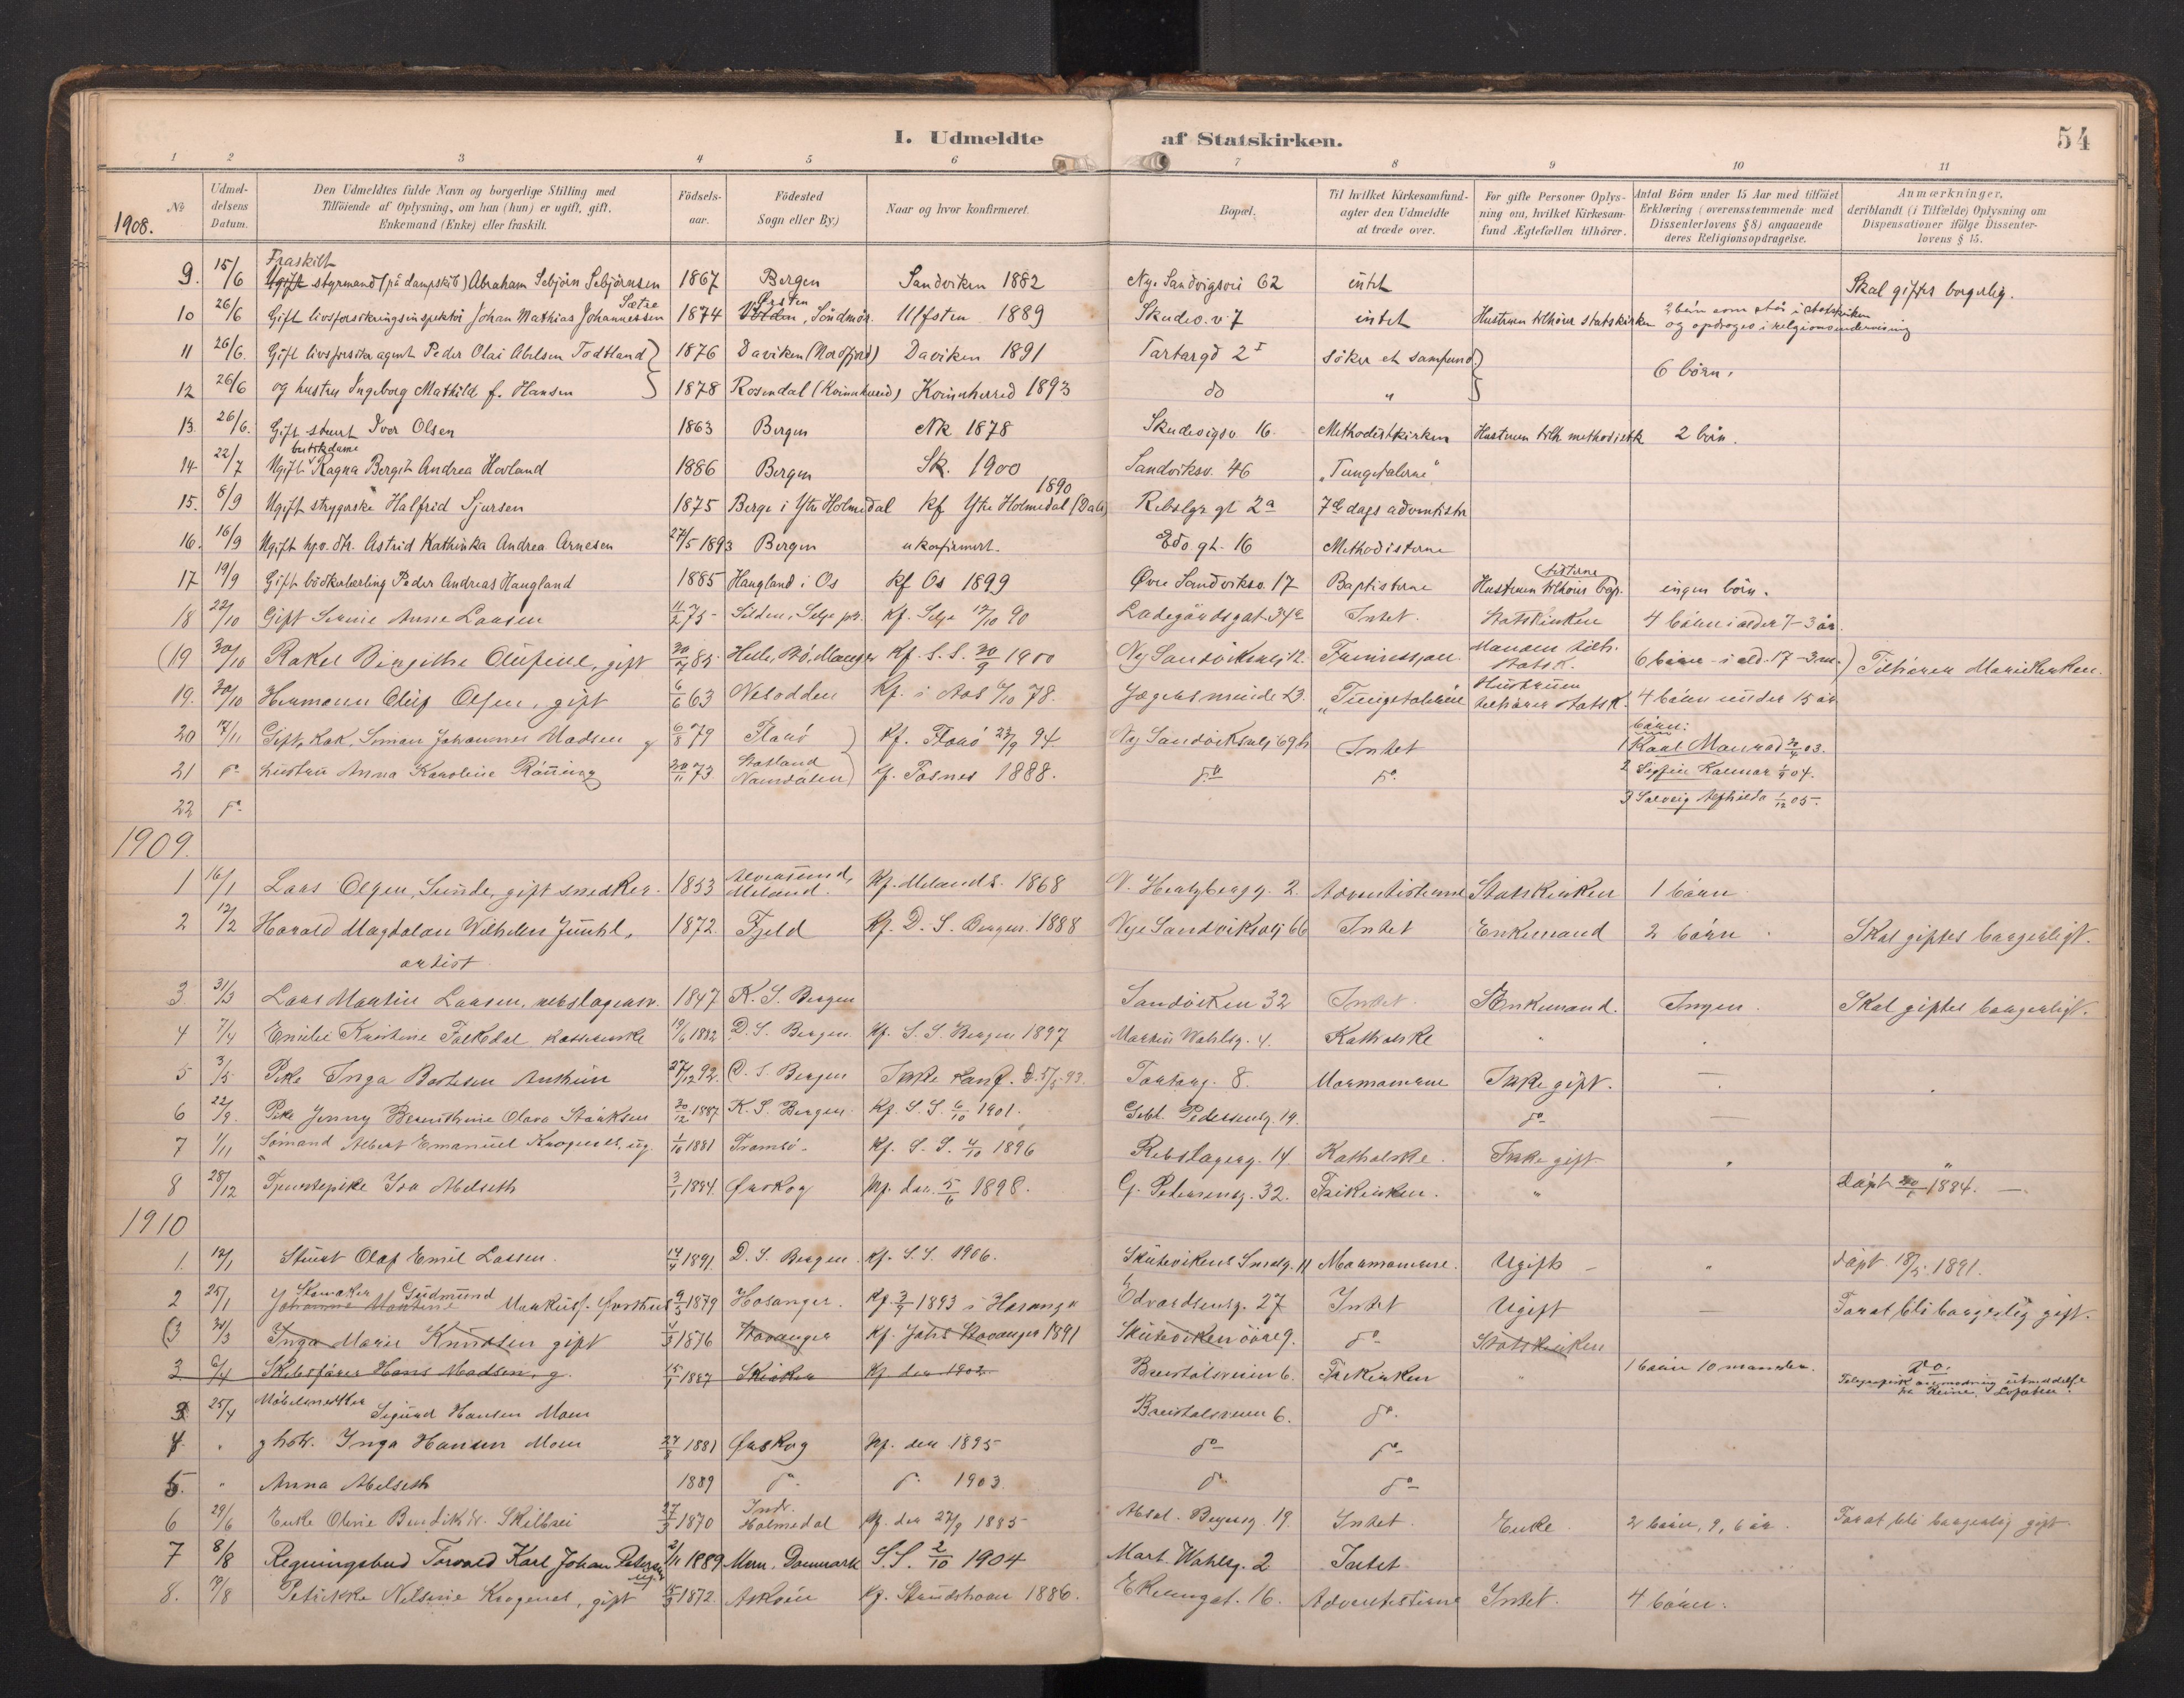 I. Udmeldte af Statskirken. 54
1 2 3 4 5 6 7 8 9 10 11
№ Udmeldelsens Datum. Den Udmeldtes fulde Navn og borgerlige Stilling med Tilföiende af Oplysning, om han (hun) er ugift, gift, Enkemand (Enke) eller fraskilt. Födselsaar. Födested Sogn eller By) Naar og hvor konfirmeret. Bopæl. Til hvilket Kirkesamfund agter den Udmeldte at træde over. For gifte Personer Oplysning om, hvilket Kirkesamfund Ægtefællen tilhörer. Antal Börn under 15 Aar med tilföiet Erklæring (overensstemmende med Dissenterlovens § 8) angaaende deres Religionsopdragelse. Anmærkninger, deriblandt (i Tilfælde) Oplysning om Dispensationer ifölge Dissenterlovens § 15.
1908.
9. 15/6 Fraskilt Ugift styrmand (på dampskib) Abraham Sebjörn Sebjörnsen 1867 Bergen Sandviken 1882 Nye Sandvigsvei 62 intet Skal giftes borgerlig.
10 26/6 Gift livsforsikringsinspektör Johan Mathias Johannessen Sætre 1874 Ørsten Volden, Söndmör. Ulfsten 1889 Skudev. v. 7 intet Hustruen tilhörer statskirken 2 börn som står i statskirken og opdrages i religionsundervisning
11 26/6. Gift livsforsikr agent Peder Olai Abelsen Todtland 1876 Daviken (Nordfjord) Daviken 1891 Tartargd 2 I söker et samfund 6 börn.
12 26/6 og hustru Ingeborg Mathild f. Hansen 1878 Rosendal (Kvinnherred) Kvinnherred 1893 do "
13. 26/6. Gift stuert Iver Olsen 1863 Bergen Nk 1878 Skudevigsv. 16 Methodistkirken Hustruen tilh methodistk 2 börn.
14 22/7 Ugift butikdame Ragna Bergit Andrea Hovland 1886 Bergen Sk. 1900 Sandviksv. 46 "Tungetalerne"
15. 8/9 Ugift strygerske Halfrid Sjursen 1875 Berge i Ytre Holmedal kf Ytre Holmedal (Dale) 1890 Rebslgr gt 2a 7de dags adventister
16. 16/9 Ugift hjv. dtr. Astrid Kathinka Andrea Arnesen 27/5 1893 Bergen ukonfirmert. Edv. gt. 16 Methodisterne
17 19/9 Gift bödkerlærling Peder Andreas Haugland 1885 Haugland i Os kf Os 1899 Øvre Sandviksv. 17 Baptisterne Hustruen tilhörer bap. tisterne ingen börn.
18 22/10 Gift Anne Larsen 11/2 75 Silden, Selje pr. kf. Selje 12/10 90 Ladegårdsgat. 34a Intet. Statskirken 4 börn i alder 7-3 år.
(19 30/10 Rakel Birgithe Olufine, gift 20/7 85 Helle, Bö, Manger kf. S. S. 30/9 1900 Ny Sandviksvej 12. Frimission. Manden tilh. Statsk. 6 börn i ald. 17-3 m.) Tilhörer Mariekirken.
19. 30/10 Hermann Oluf Olsen, gift 6/6 63 Nesodden kf. i Aas 6/10 78. Jægersminde 23. "Tungetalerne Hustruen tilhörer statsk. 4 börn under 15 år
20 17/11 Gift, Kok, Simon Johannes Madsen og 6/8 79 Florö kf. Florö 27/9 94. Ny Sandviksvej 69 b Intet börn: 1 Karl Monrad 20/4 03.
21 do hustru Anna Karoline Rönning 20/11 73 Statland Namdalen kf. Fosnes 1888. do do 2 Sigfin Kalmar 1/4 04.
22 do 3 Solveig Alfhilda 1/12 05.
1909.
1 16/1 Lars Olsen, Sunde, gift snedker. 1853 Alversund, Meland. kf. Meland k. 1868 V. Hertzbergg. 2. Adventisterne Statskirken 1 barn
2 12/2 Harald Magdalon Wilhelm Juuhl, artist 1872. Fjeld kf. D. S. Bergen. 1888 Nye Sandviksvej 66 Intet Enkemand 2 börn. Skal giftes borgerligt.
3. 31/3 Lars Martin Larsen, rebslagersv. 1847 K. S. Bergen Sandviken 32 Intet. Enkemand. Ingen Skal giftes borgerligt.
4 7/4 Emilie Kristine Falkedal kassererske 19/6 1882 D. S. Bergen kf. S. S. Bergen 1897 Martin Wahlsg. 4. Katholske "
5 3/5 Pike Inga Bertesen 27/12 92. D. S. Bergen Ikke konf. D. 5/2 93. Tartarg. 8. Mormonerne Ikke gift. —
6 22/9. Pike Jenny Olava Starksen 20/12 1887 K. S. Bergen. kf. S. S. 6/10 1901. Gebl. Pedersensg. 19. do —
7 1/11 Sömand Albert Emanuel Krogenes, ug. 1/10 1881 Tromsö. kf. S. S. 4/10 1896 Rebslagerg. 14. Katholske. Ikke gift " "
8 28/12 Tjenstepike Iva Abelseth 3/1 1884. Ørskog kf. der. 5/6 1898. G. Pedersensg. 32. Frikirken. " Döpt 20/1 1884. —
1910
1. 12/1 Stuert Olaf Emil Larsen. 14/4 1891. D. S. Bergen. kf. S. S. 1906. Skutevikens Smalg. 11 Mormonerne. Ugift — " Döpt 18/5 1891.
2 25/1 Skomaker Gudmund 9/5 1879 Hosanger. kf. 3/9 1893 i Hosanger Edvardsensg. 27 Intet Ugift — For at bli borgerlig gift.
(3 30/3 Inga Marie Knudsen gift 4/5 1876 Stavanger kf. Johs Stavanger 1891 Skuteviken övre 9. do Statskirken
3. 6/4 Skibsförer Hans Madsen, g. 15/9 1887 kf. der 1902 Breistölsveien 6. Frikirken " 1 barn 10 maaneder. do.
3 25/4 Möbelsnedker Sigurd Hansen Moen Breistölsveien 6. do.
4. " g hstr. Inga Hansen Moen 27/8 1881 Ørskog kf. der 1895 do do
5. " Anna Abelseth 1889 do do 1903. do do
6 29/6 Enke Oline Benedikte Skilbrei 27/3 1870 Indr. Holmedal kf. der 27/9 1885 Absal. Beyersg. 19. Intet. Enke. 2 börn, 9, 6 år. For at bli borgerlig gift.
7 8/8 Regningsbud Torvald Karl Johan Petersen ug. 2/11 1889 Mern, Danmark S. S. 2/10 1904 Mart. Wahlsg. 2 Intet
8. 19/8 Petrikke Nilsine Krogenes, gift 15/3 1872. Asköen kf. Strudshavn 1886. Ekrengat. 16. Adventisterne Intet. 4 börn.